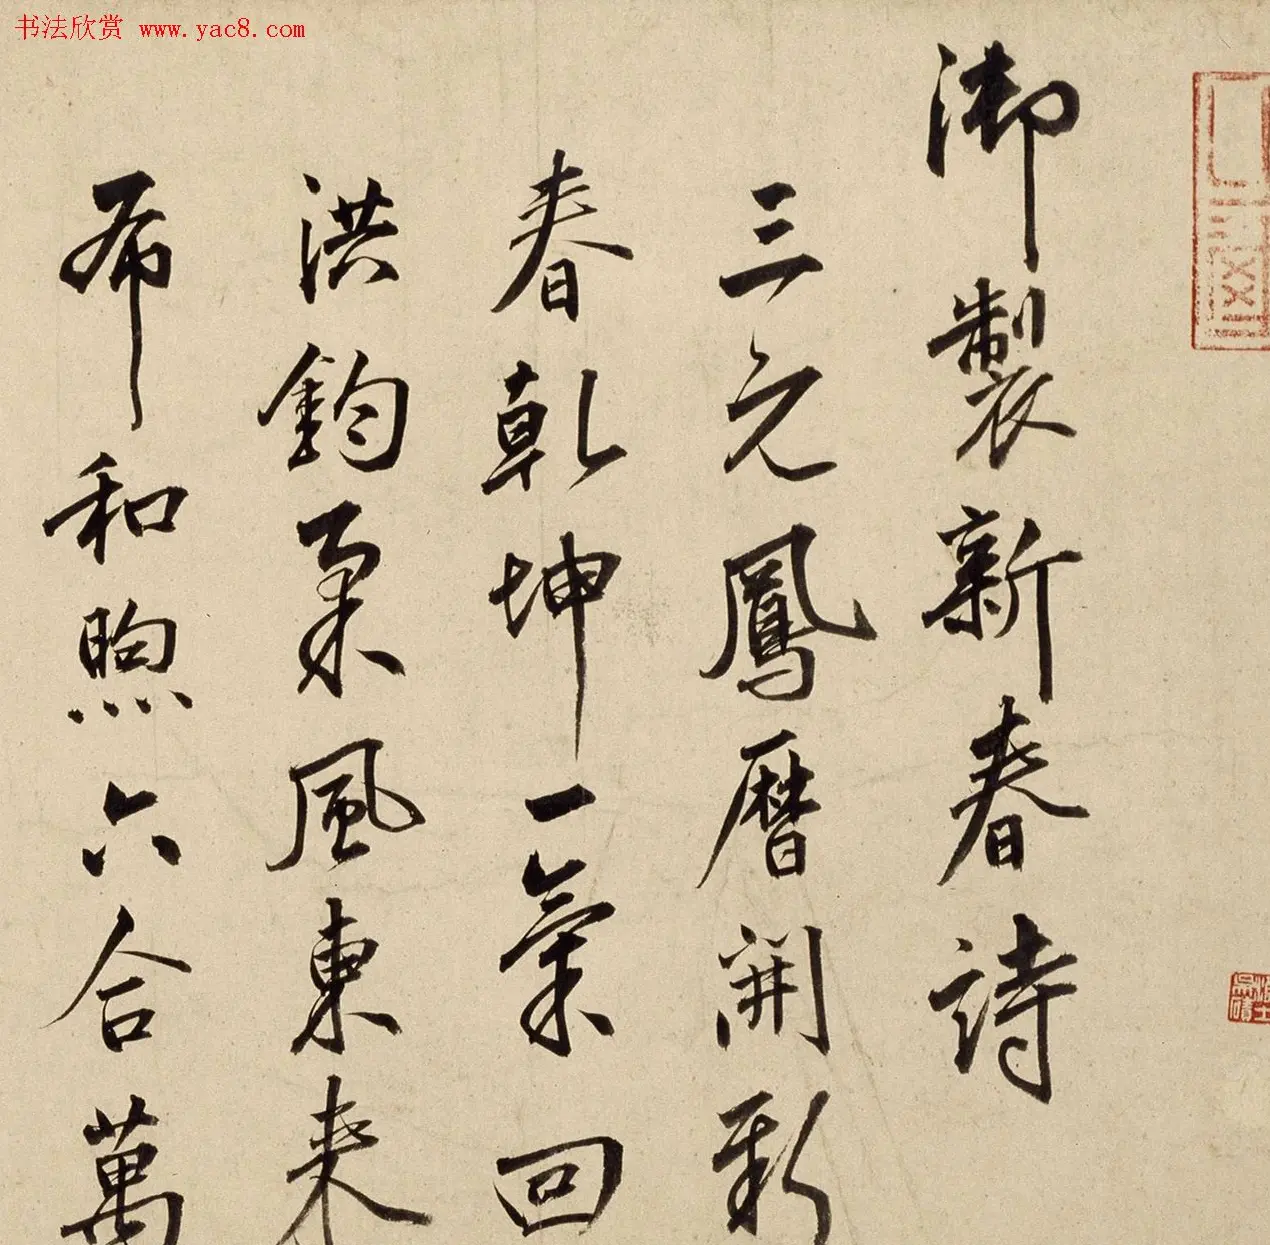 书法欣赏 www.yac8.com
御製新春詩
三元鳳曆開新
春乾坤一氣回
洪鈞柔風東来
布和煦六合萬